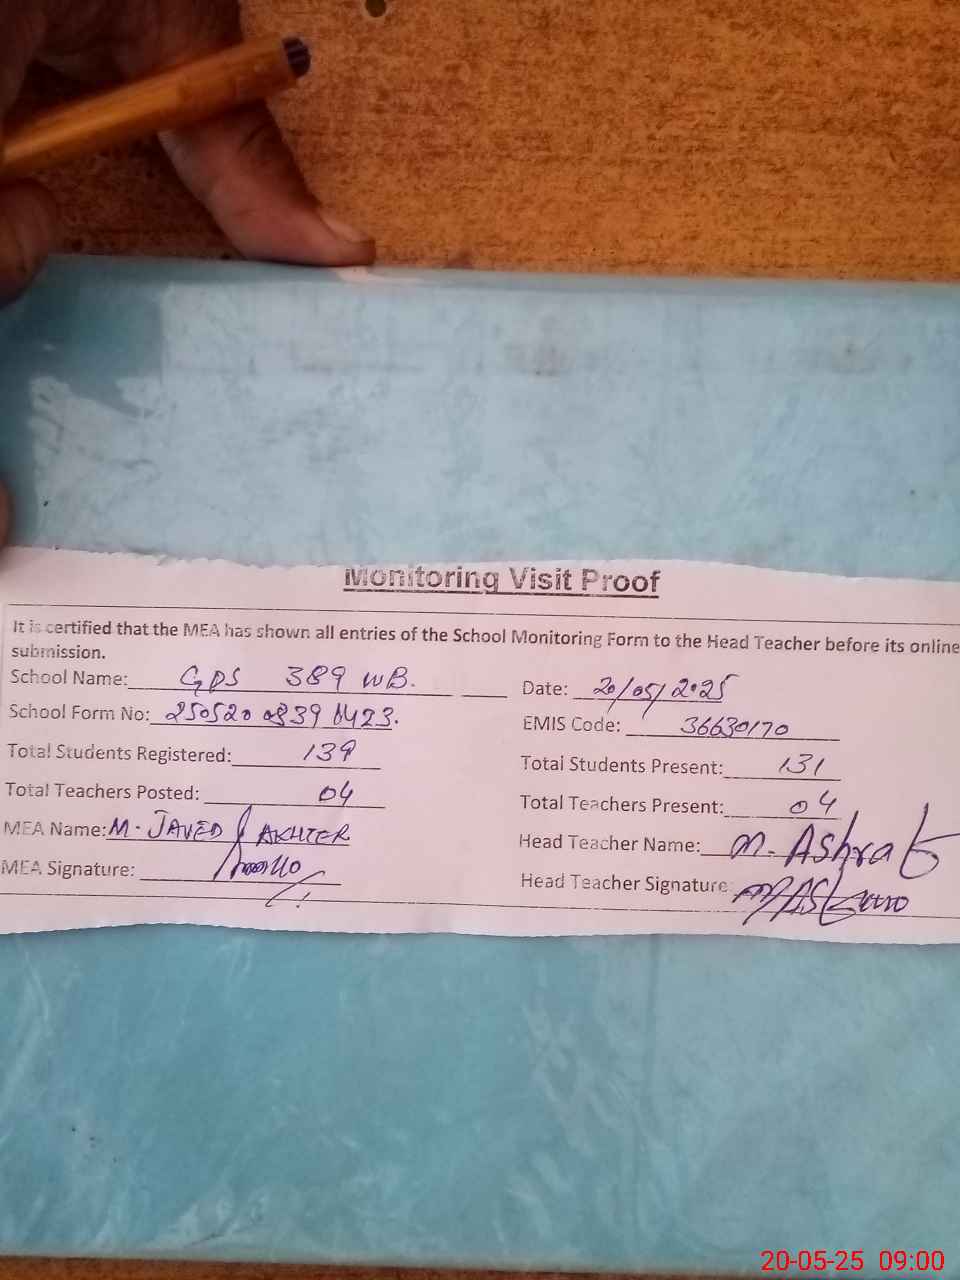 Monitoring Visit Proof
It is certified that the MEA has shown all entries of the School Monitoring Form to the Head Teacher before its online
submission.
School Name: GPS 389 WB. Date: 20/05/2025
School Form No: 250520 0839 6423. EMIS Code: 36630170
Total Students Registered: 139 Total Students Present: 131
Total Teachers Posted: 04 Total Teachers Present: 04
MEA Name: M. JAVED AKHTER Head Teacher Name: M. Ashraf
MEA Signature: Head Teacher Signature:
20-05-25 09:00